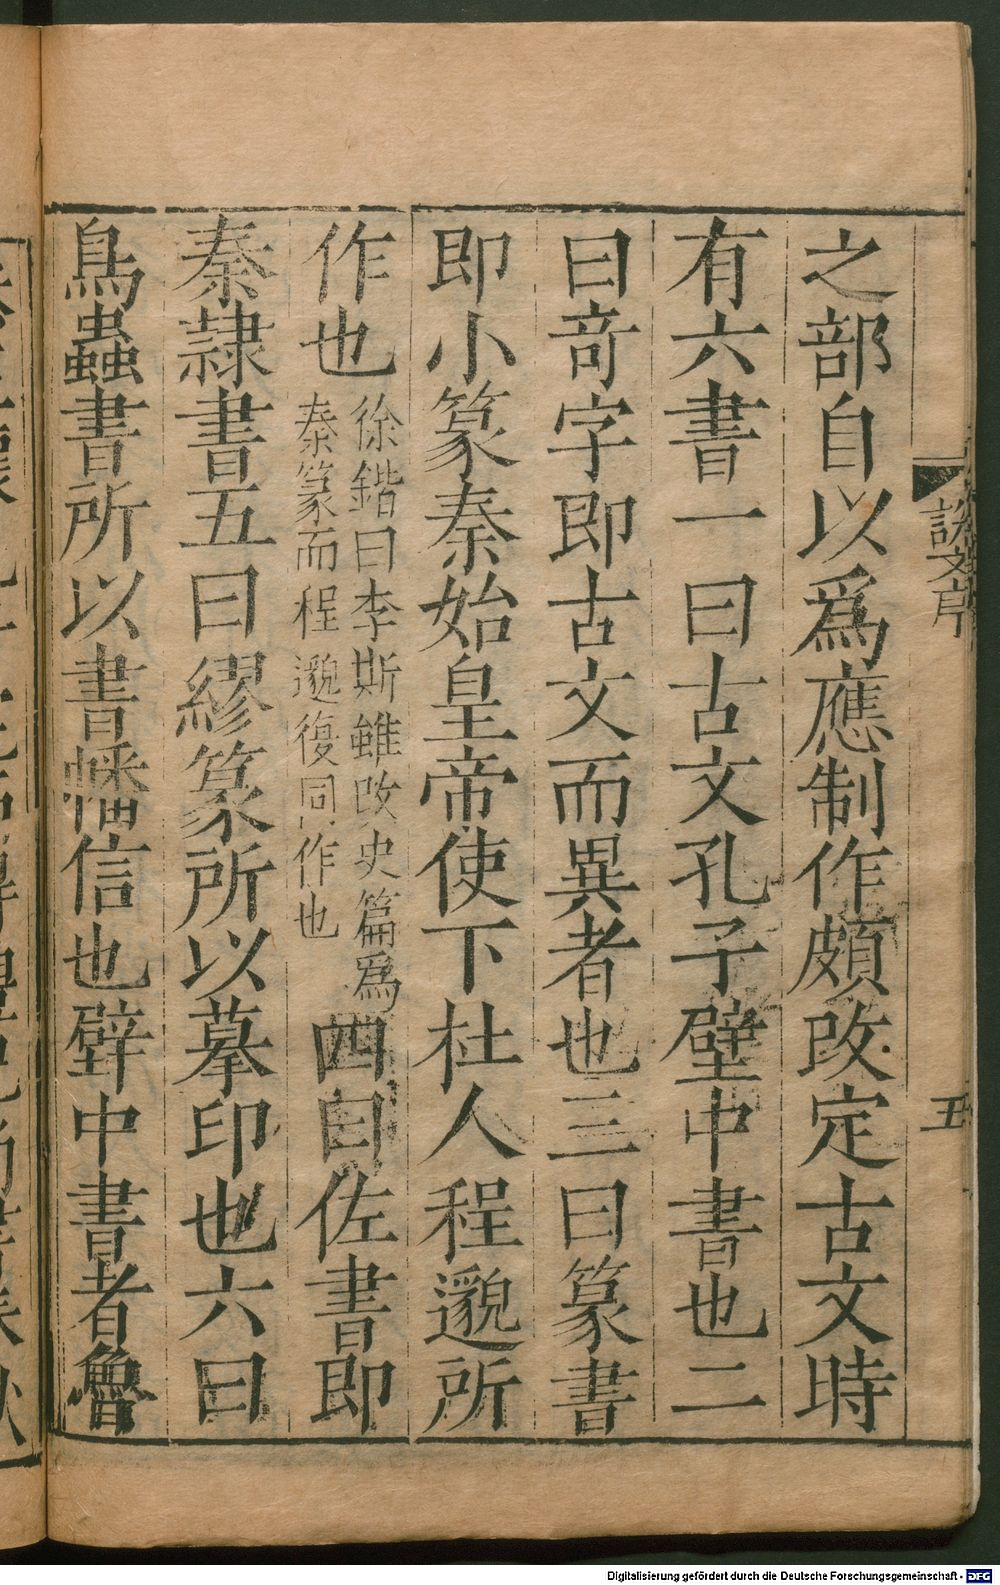 之部自以爲應制作頗改定古文時
有六書一曰古文孔子壁中書也二
曰奇字即古文而異者也三曰篆書
即小篆秦始皇帝使下杜人程邈所
作也徐鍇曰李斯雖改史篇爲秦篆而程邈復同作也四曰佐書即
秦隷書五曰繆篆所以摹印也六曰
鳥蟲書所以書幡信也壁中書者魯
說文序
五
Digitalisierung gefördert durch die Deutsche Forschungsgemeinschaft - DFG